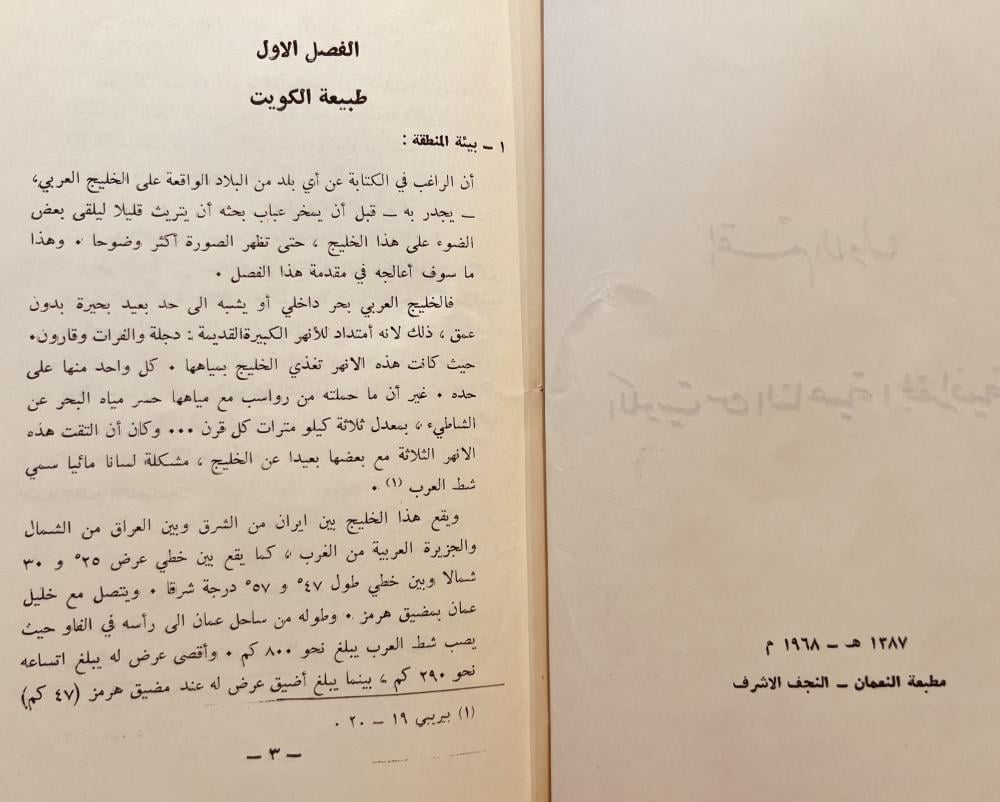 ١٣٨٧ هـ – ١٩٦٨ م
مطبعة النعمان – النجف الاشرف
الفصل الاول
طبيعة الكويت
١ – بيئة المنطقة :
أن الراغب في الكتابة عن أي بلد من البلاد الواقعة على الخليج العربي،
– يجدر به – قبل أن يمخر عباب بحثه أن يتريث قليلا ليلقى بعض
الضوء على هذا الخليج ، حتى تظهر الصورة أكثر وضوحا ٠ وهذا
ما سوف أعالجه في مقدمة هذا الفصل ٠
فالخليج العربي بحر داخلي أو يشبه الى حد بعيد بحيرة بدون
عمق ، ذلك لانه أمتداد للأنهر الكبيرةالقديمة : دجلة والفرات وقارون٠
حيث كانت هذه الانهر تغذي الخليج بمياهها ٠ كل واحد منها على
حده ٠ غير أن ما حملته من رواسب مع مياهها حسر مياه البحر عن
الشاطيء ، بمعدل ثلاثة كيلو مترات كل قرن ٠٠٠ وكان أن التقت هذه
الانهر الثلاثة مع بعضها بعيدا عن الخليج ، مشكلة لسانا مائيا سمي
شط العرب (١) ٠
ويقع هذا الخليج بين ايران من الشرق وبين العراق من الشمال
والجزيرة العربية من الغرب ، كما يقع بين خطي عرض ٢٥° و ٣٠
شمالا وبين خطي طول ٤٧° و ٥٧° درجة شرقا ٠ ويتصل مع خليل
عمان بمضيق هرمز ٠ وطوله من ساحل عمان الى رأسه في الفاو حيث
يصب شط العرب يبلغ نحو ٨٠٠ كم ٠ وأقصى عرض له يبلغ اتساعه
نحو ٢٩٠ كم ، بينما يبلغ أضيق عرض له عند مضيق هرمز (٤٧ كم)
(١) بيريبي ١٩ – ٢٠ .
– ٣ –